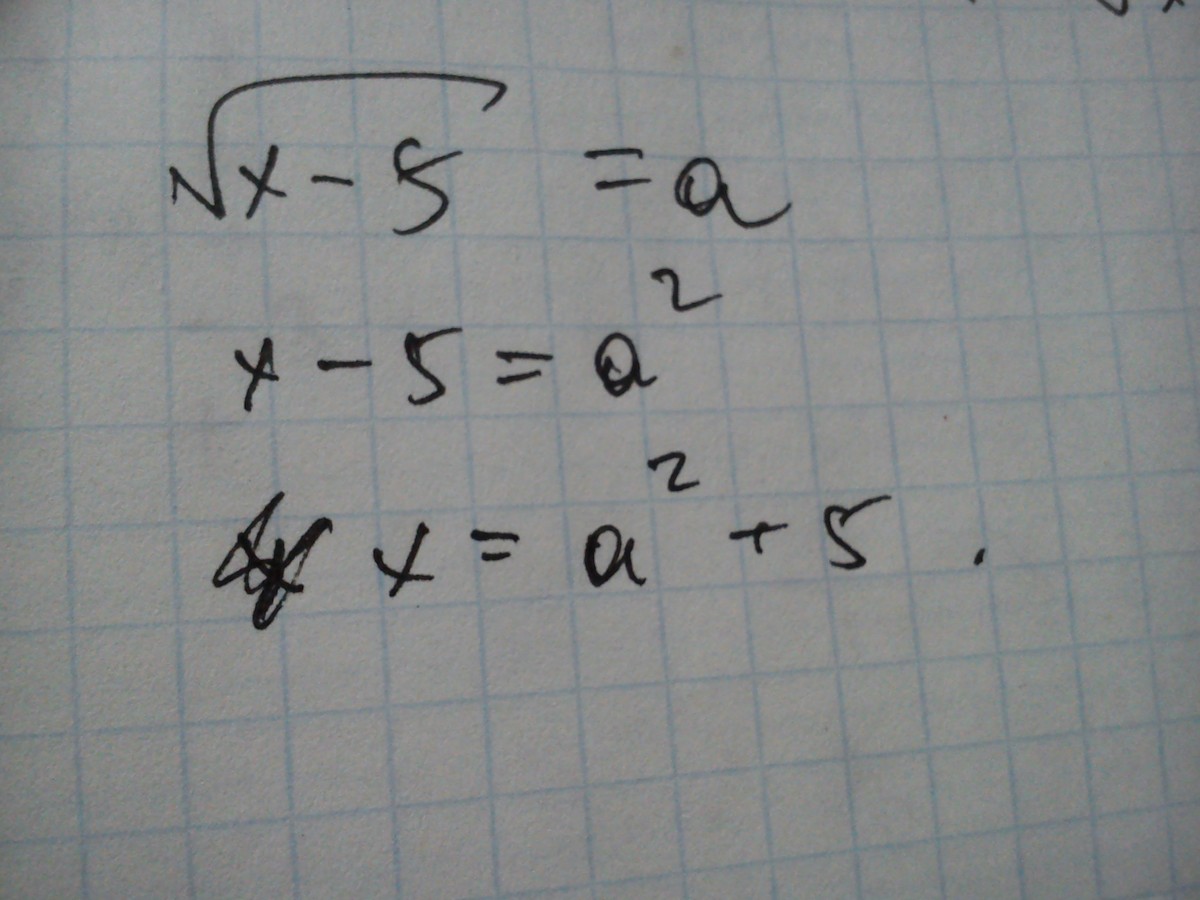 √x - 5 = a
x - 5 = a²
x = a² + 5 .